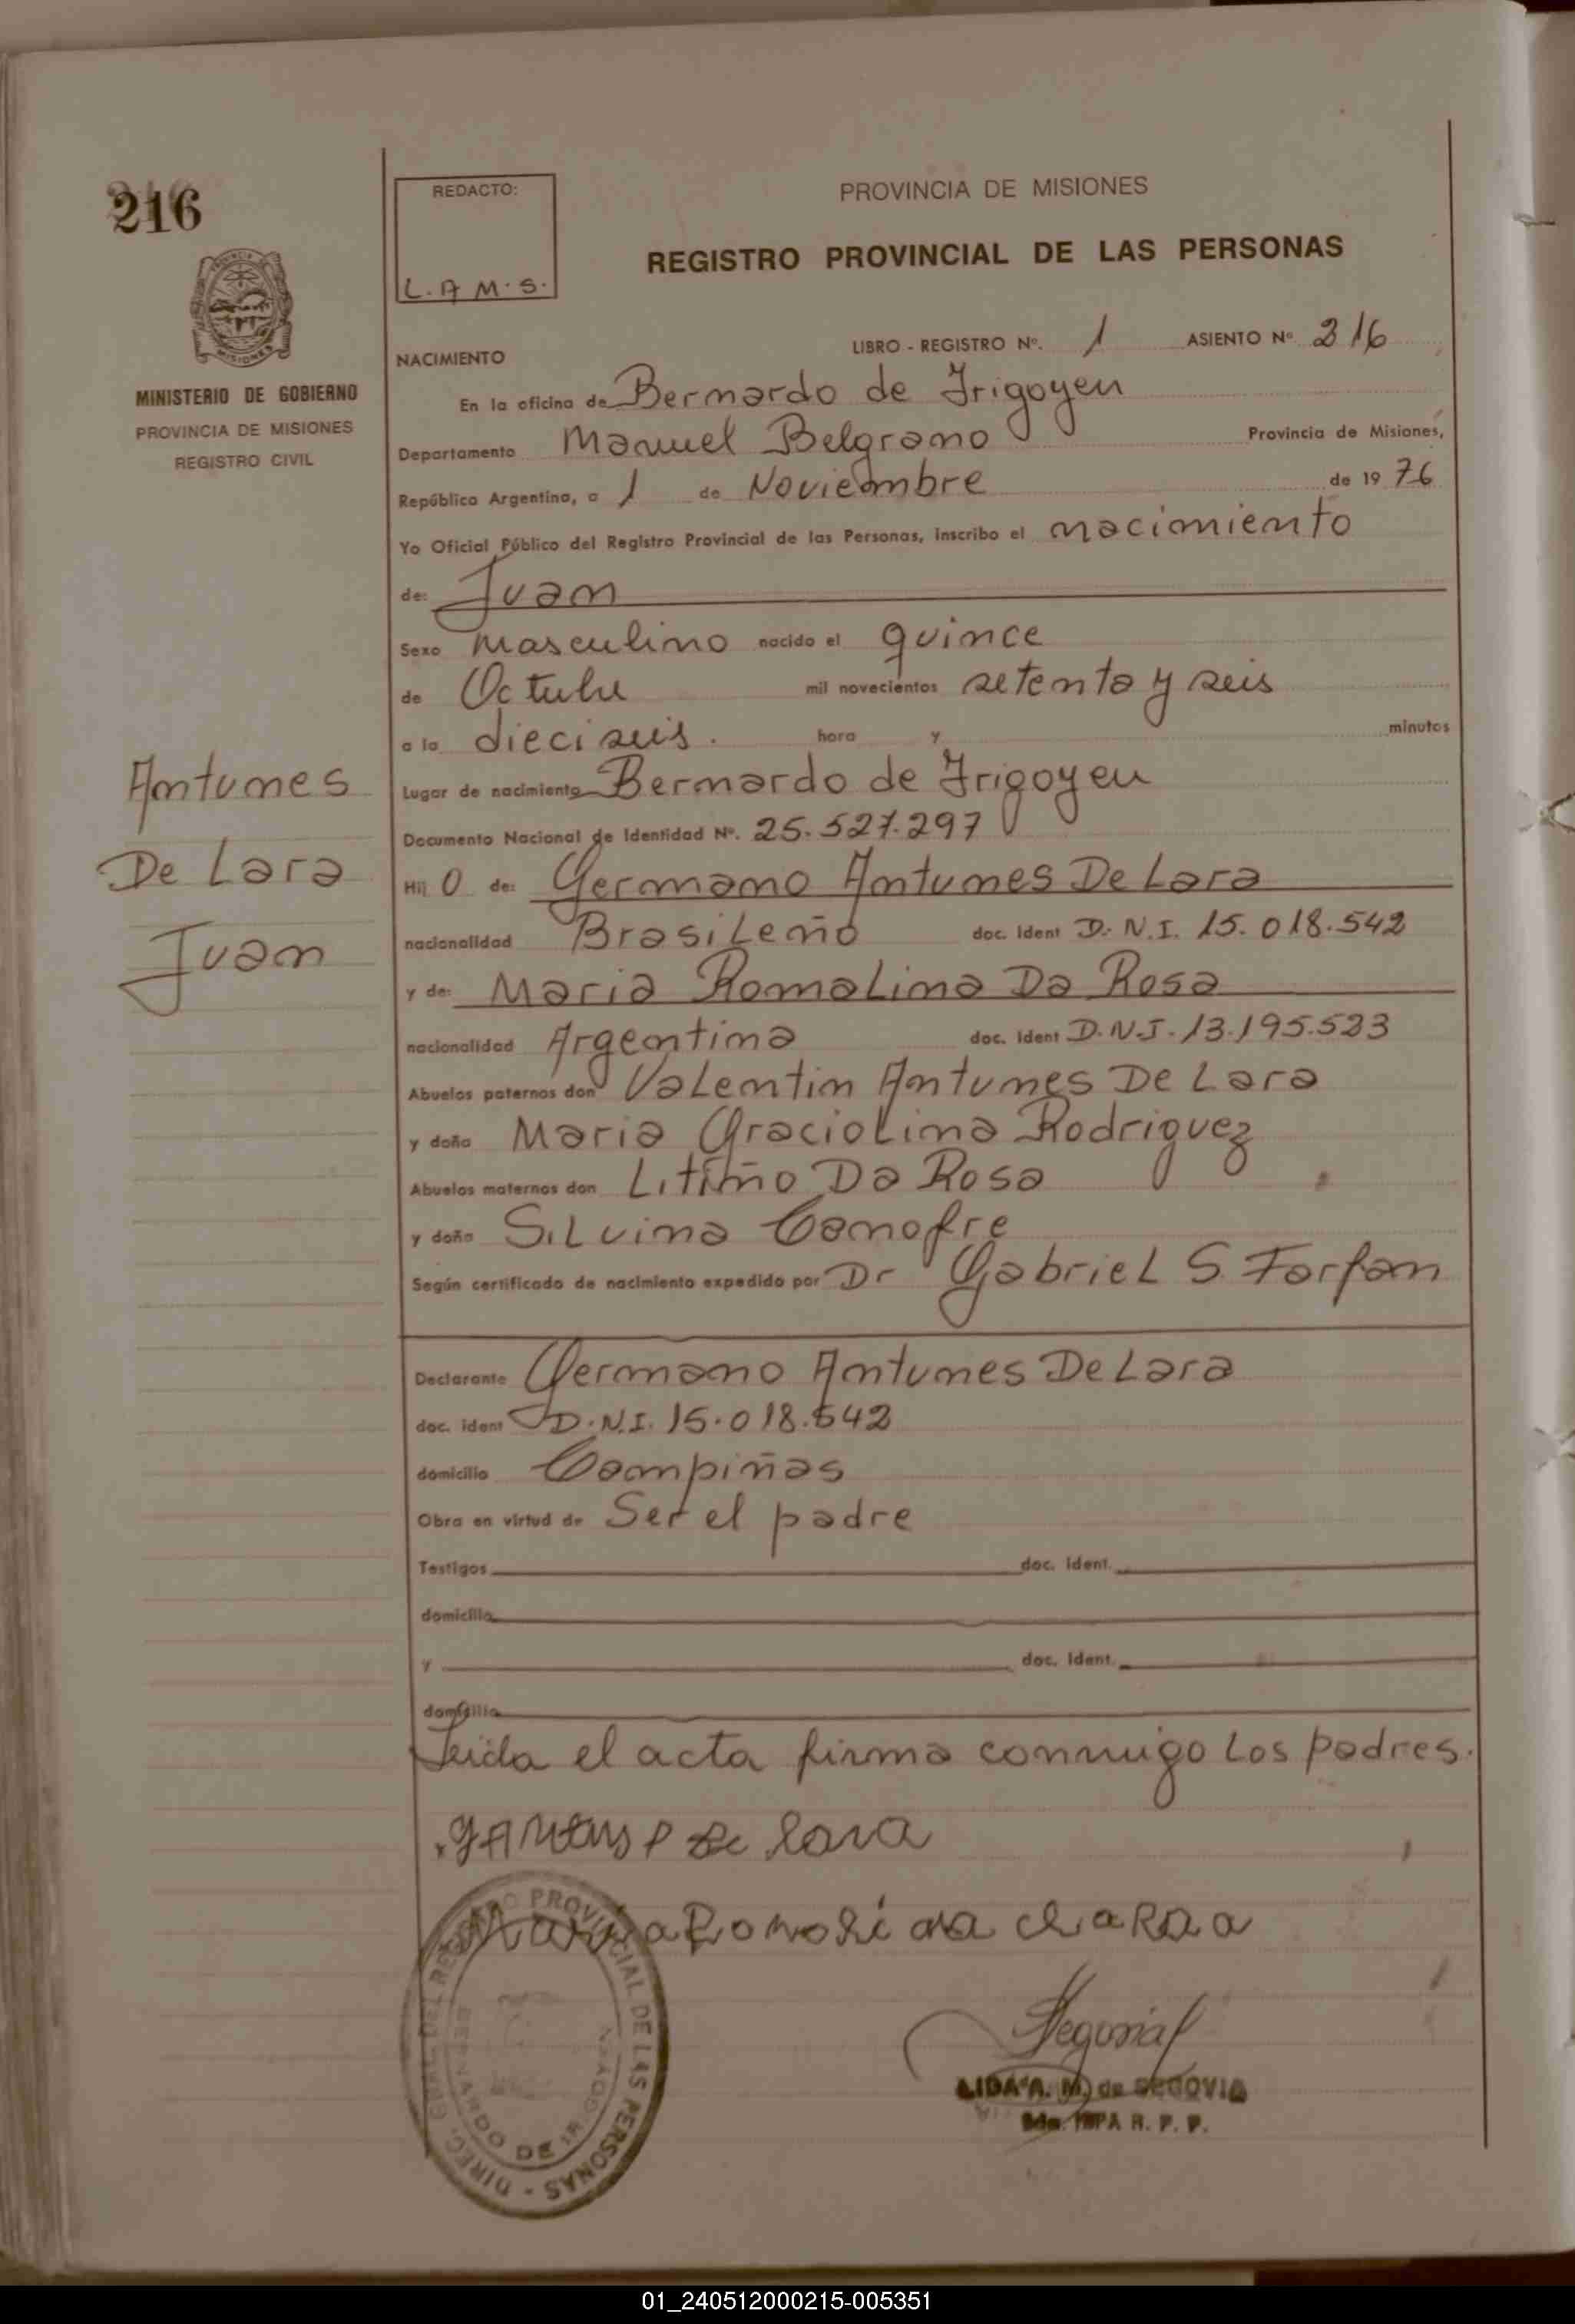 216
REDACTO:
L.A M.S.
PROVINCIA DE MISIONES
REGISTRO PROVINCIAL DE LAS PERSONAS
MISIONES
MINISTERIO DE GOBIERNO
PROVINCIA DE MISIONES
REGISTRO CIVIL
NACIMIENTO LIBRO - REGISTRO Nº. 1 ASIENTO Nº 216
En la oficina de Bernardo de Irigoyen
Departamento Manuel Belgrano Provincia de Misiones,
República Argentina, a 1 de Noviembre de 19 76
Yo Oficial Público del Registro Provincial de las Personas, inscribo el nacimiento
de: Juan
Sexo Masculino nacido el quince
de Octubre mil novecientos setenta y seis
a la dieciseis. hora y minutos
Lugar de nacimiento Bernardo de Irigoyen
Documento Nacional de Identidad Nº. 25.527.297
Antunes
De Lara
Juan
Hij O de: Germano Antunes De Lara
nacionalidad Brasileño doc. Ident D.N.I. 15.018.542
y de: Maria Romalina Da Rosa
nacionalidad Argentina doc. Ident D.N.I. 13.195.523
Abuelos paternos don Valentin Antunes De Lara
y doña Maria Graciolina Rodriguez
Abuelos maternos don Da Rosa
y doña Silvina Canofre
Según certificado de nacimiento expedido por Dr Gabriel S. Farfan
Declarante Germano Antunes De Lara
doc. ident D.N.I. 15.018.542
domicilio Campiñas
Obra en virtud de Ser el padre
Testigos doc. Ident.
domicilio
y doc. Ident.
domicilio
Leida el acta firma conmigo Los padres.
de Lara
DIREC. GRAL. DEL REGISTRO PROVINCIAL DE LAS PERSONAS -
BERNARDO DE IRIGOYEN
LIDA A. M. de SEGOVIA
R. P. P.
01_240512000215-005351